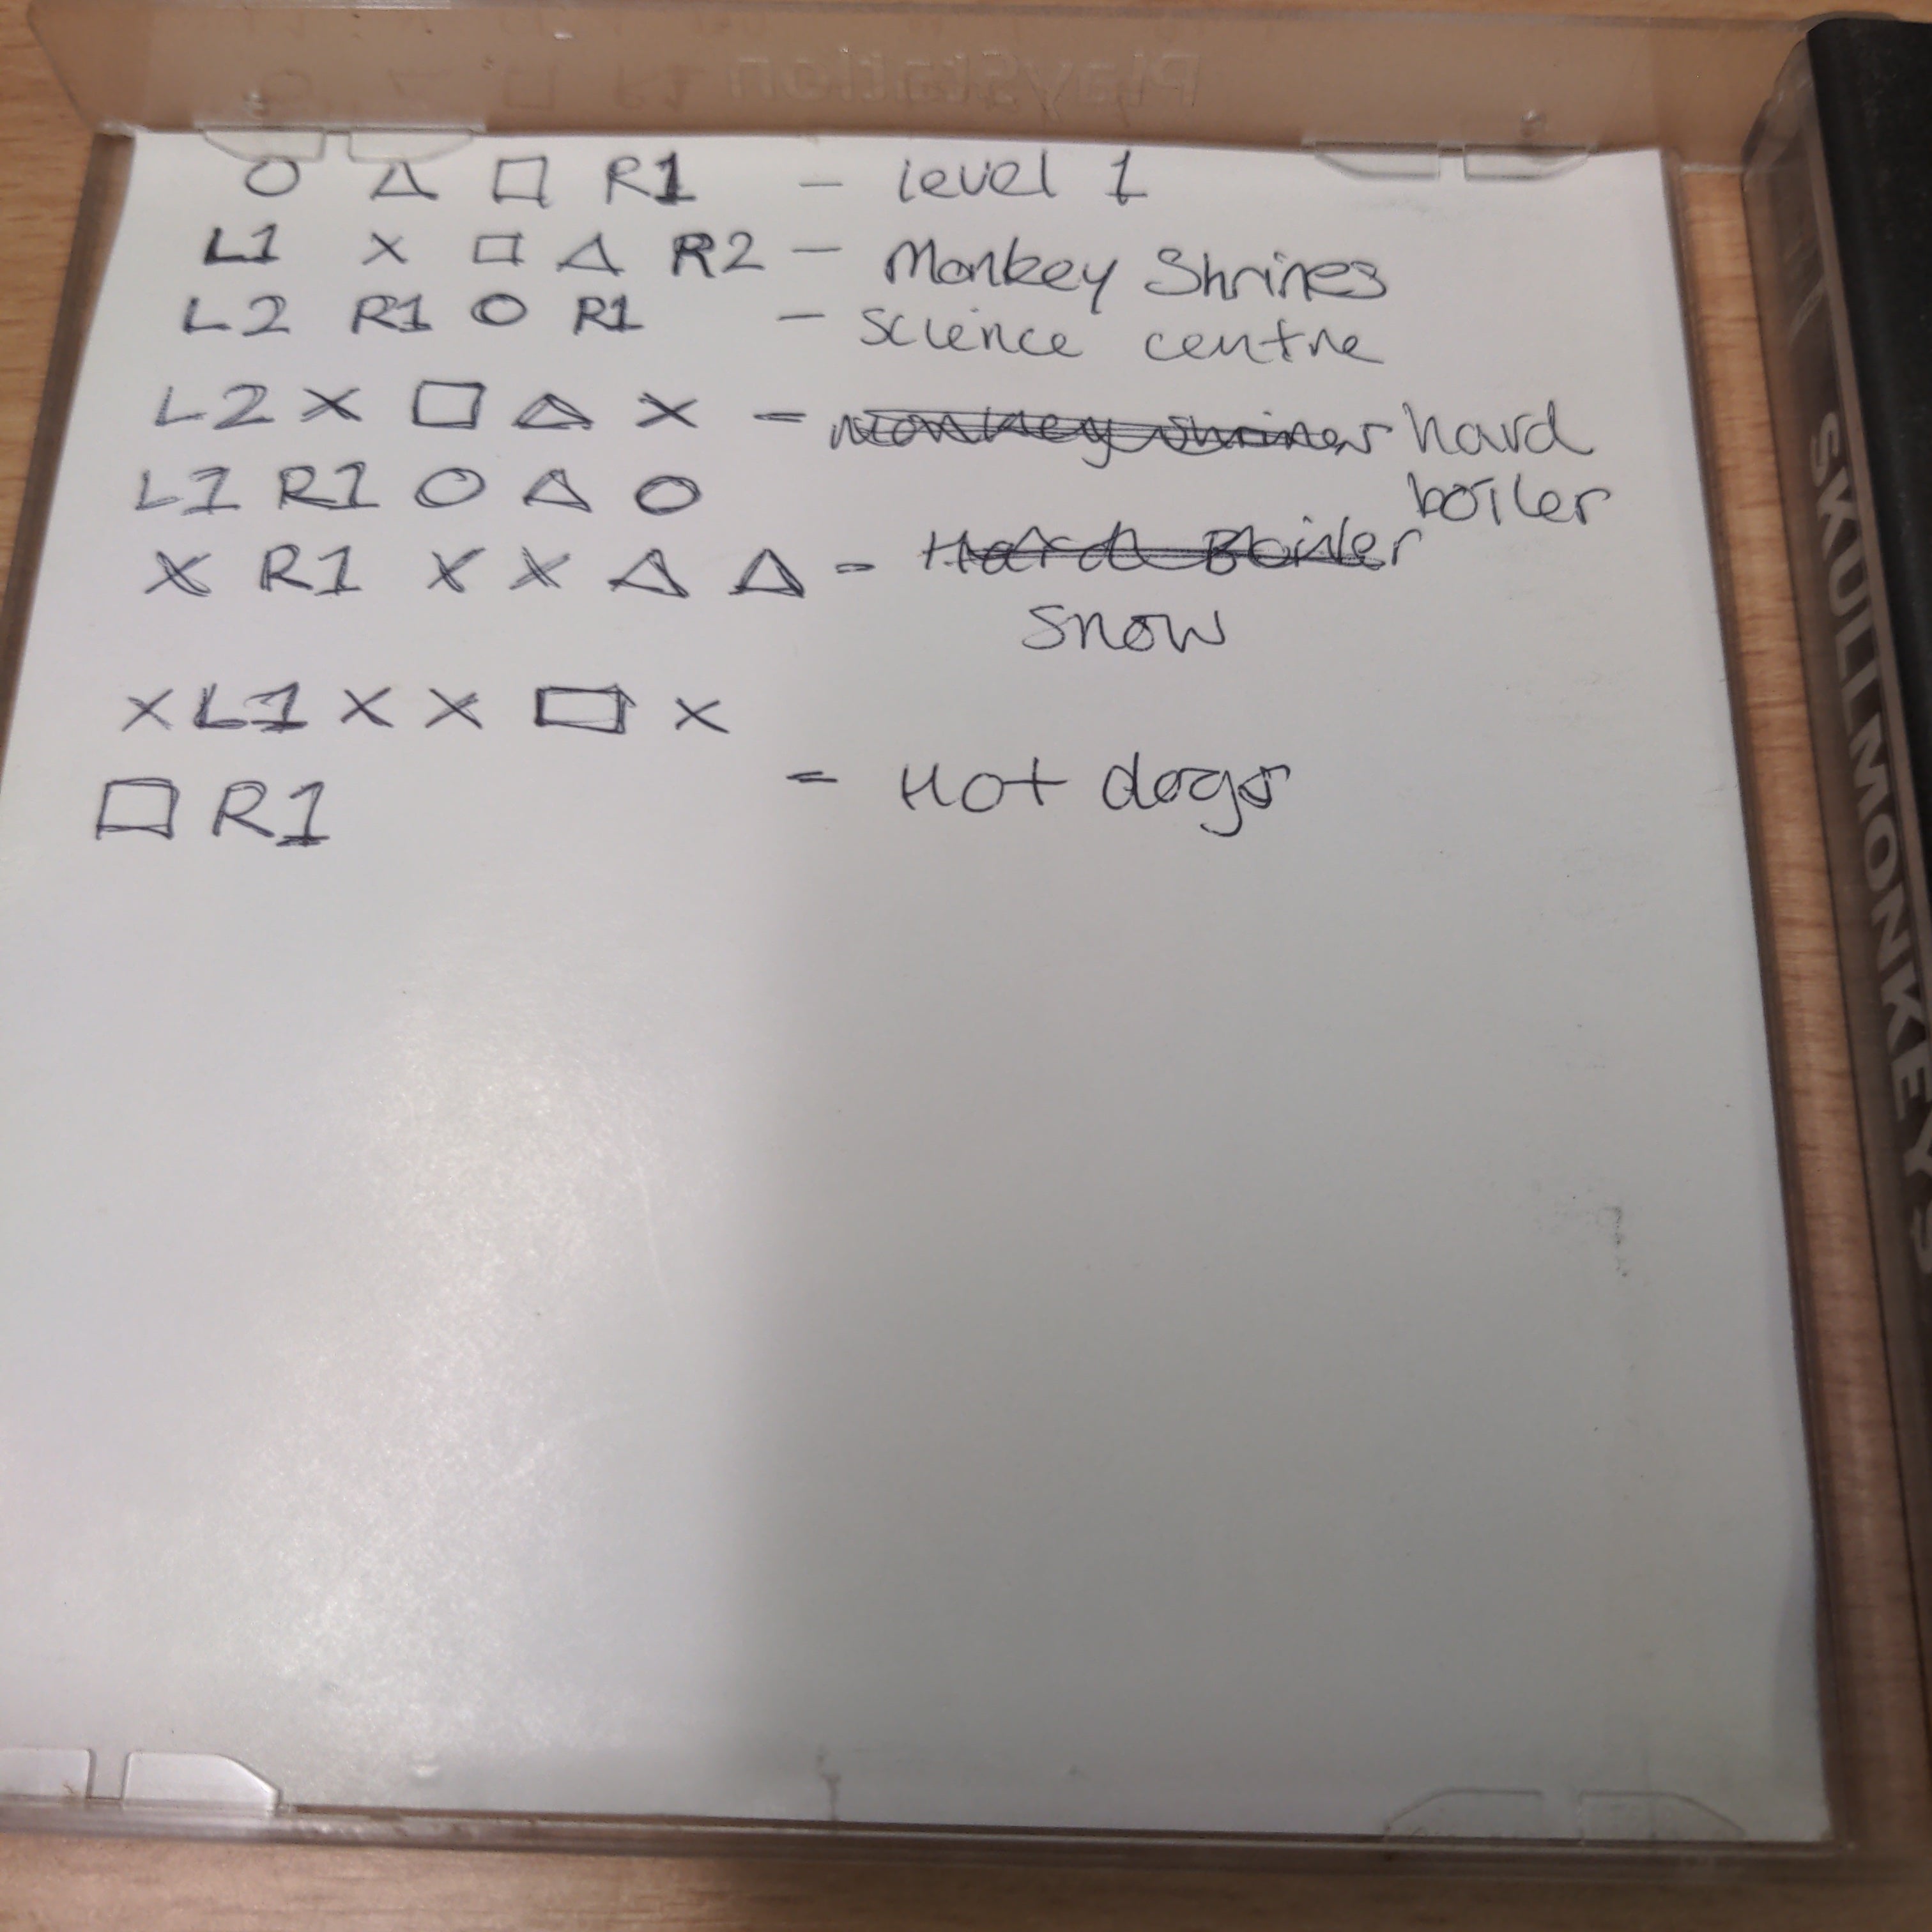 PlayStation
○ △ □ R1 – level 1
L1 × □ △ R2 – Monkey Shrines
L2 R1 ○ R1 – Science centre
L2 × □ △ × = Monkey Shrines hard
L1 R1 ○ △ ○ boiler
× R1 × × △ △ = Hard Boiler
Snow
× L1 × × □ ×
□ R1 = Hot dogs
SKULLMONKEYS